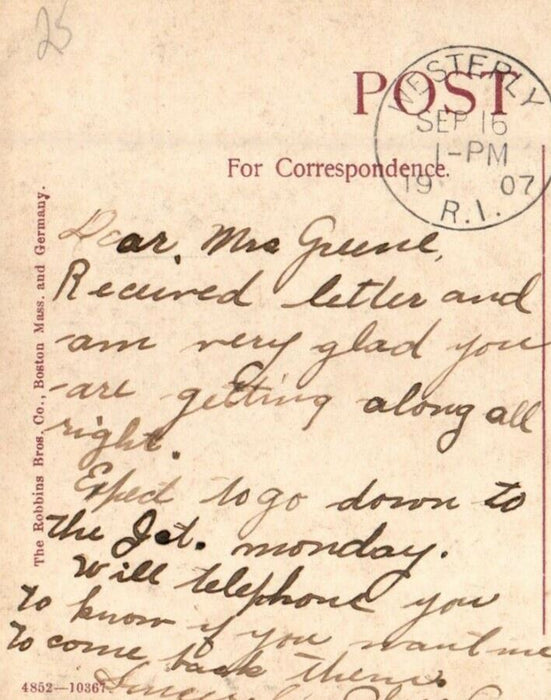 25
POST
WESTERLY
SEP 16
1-PM
19 07
R.I.
For Correspondence.
The Robbins Bros. Co., Boston Mass. and Germany.
Dear Mrs Greene,
Received letter and
am very glad you
are getting along all
right.
Expect to go down to
the Jct. monday.
Will telephone you
to know if you want me
to come back then.
4852—10367